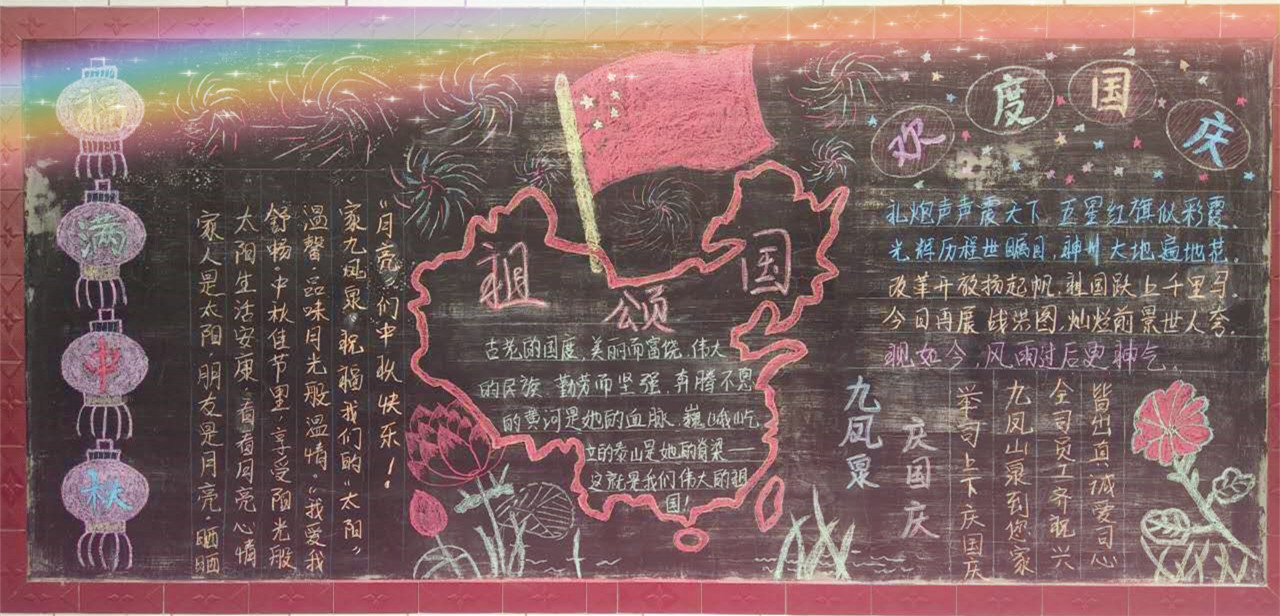 福
满
中
秋
家人是太阳,朋友是月亮,晒晒
太阳生活安康,看看月亮心情
舒畅。中秋佳节里,享受阳光般
温馨,品味月光般温情。"我爱我
家九凤泉"祝福我们的"太阳"
"月亮"们中秋快乐!
祖颂国
古老的国度,美丽而富饶,伟大
的民族,勤劳而坚强,奔腾不息
的黄河是她的血脉,巍峨屹
立的泰山是她的脊梁——
这就是我们伟大的祖
国!
欢度国庆
礼炮声声震天下,五星红旗似彩霞。
光辉历程世瞩目,神州大地遍地花。
改革开放扬起帆,祖国跃上千里马。
今日再展战洪图,灿烂前景世人夸。
观如今,风雨过后更神气。
九凤泉
庆国庆
举司上下庆国庆
九凤山泉到您家
全司员工齐祝兴
皆出真诚爱司心